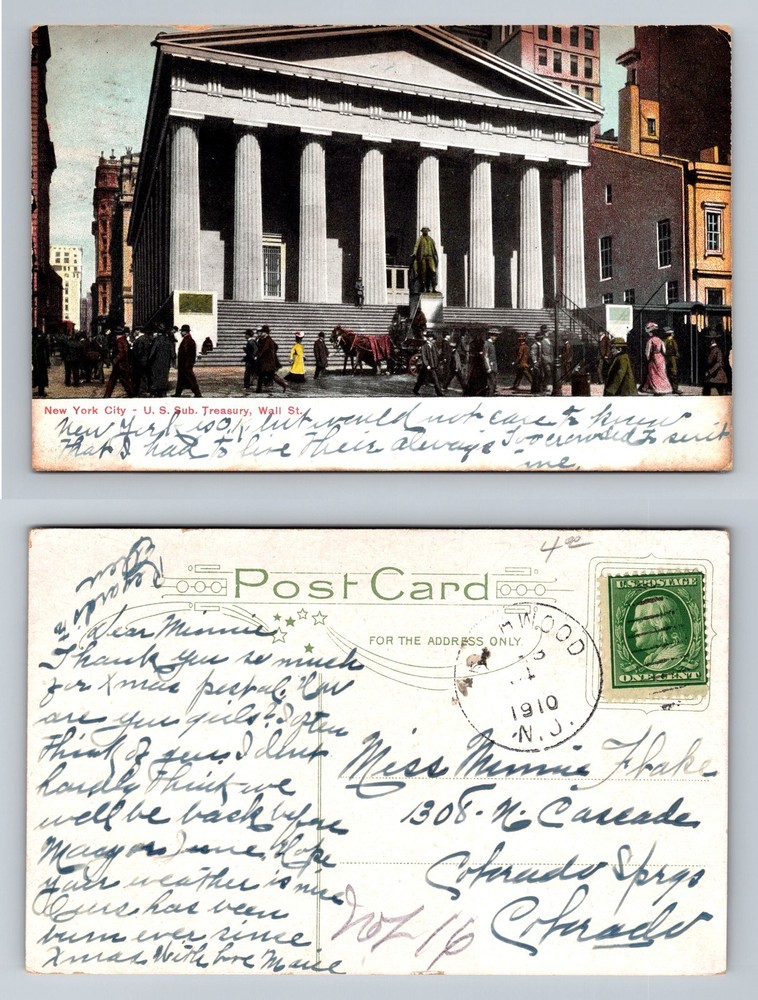 New York City - U. S. Sub. Treasury, Wall St.
New York is O.K. but would not care to know
that I had to live there always Too crowded to suit
me.
4.00
Post Card
FOR THE ADDRESS ONLY
U.S. POSTAGE
ONE CENT
WOOD
1910
N.J.
Dear Minnie
Thank you so much
for Xmas postal. How
are you girls? I often
think of you. I don't
hardly think we
will be back before
May or June. Hope
your weather is nice
Ours has been
bum ever since
Xmas. With love Marie
Miss Minnie Flake
1308 - N. Cascade
Colorado Sprgs
Colorado
Lot 16